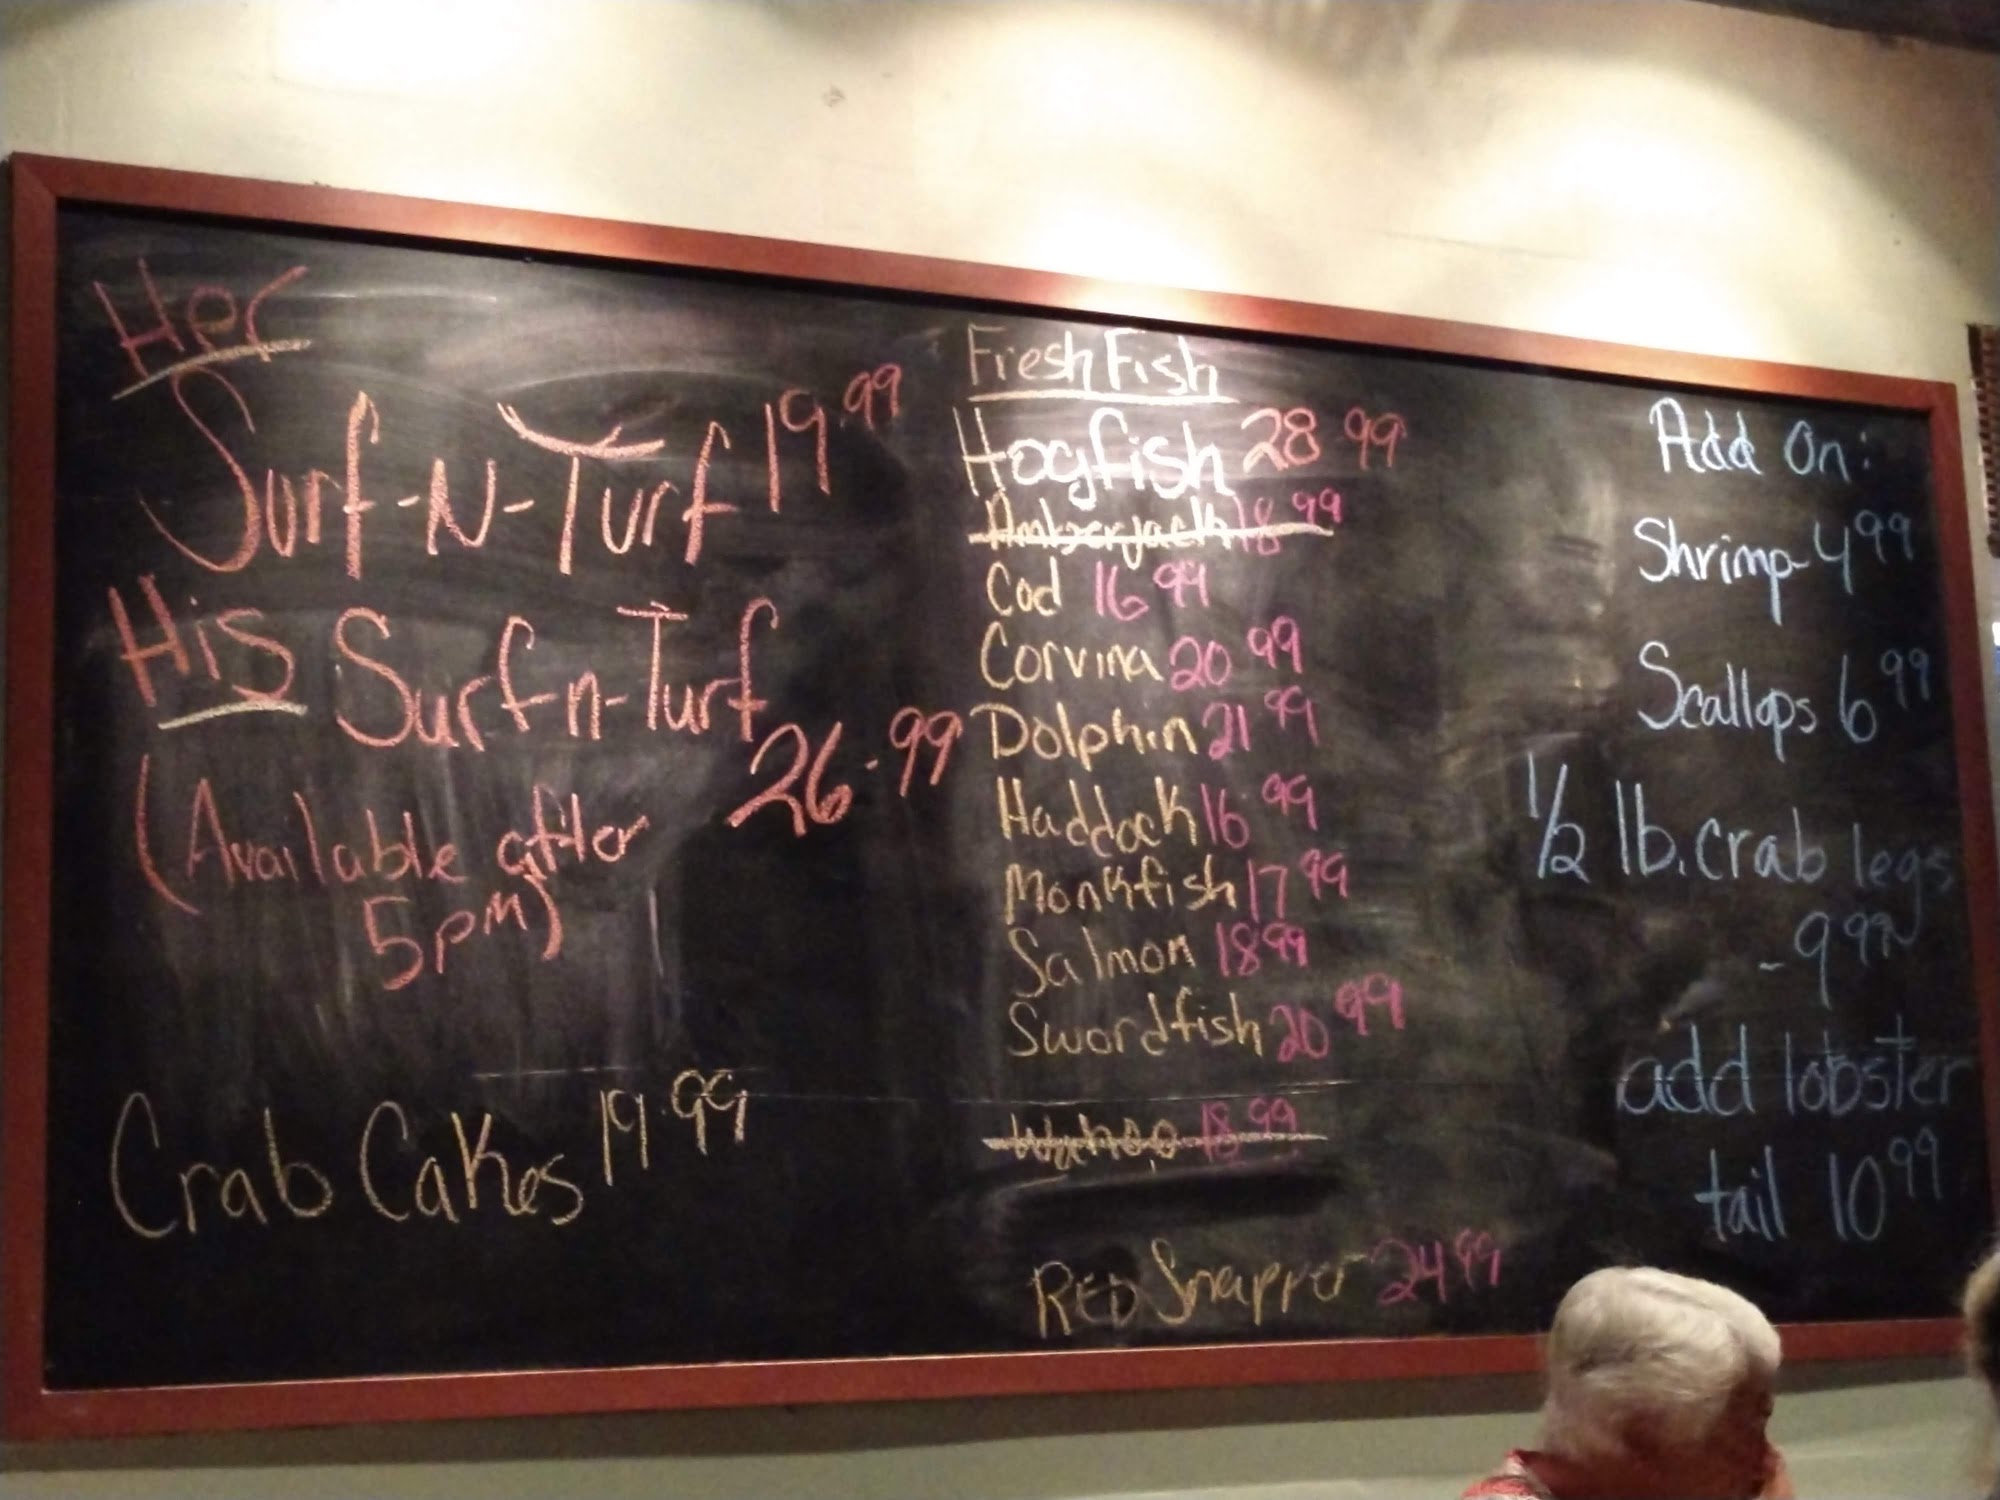 Her
Surf-N-Turf 19.99
His Surf-n-Turf
26.99
(Available after
5pm)
Crab Cakes 19.99
Fresh Fish
Hogfish 28 99
Amberjack 18 99
Cod 16 99
Corvina 20 99
Dolphin 21 99
Haddock 16 99
Monkfish 17 99
Salmon 18 99
Swordfish 20 99
Wahoo 18 99
RED Snapper 24 99
Add On:
Shrimp - 4 99
Scallops 6 99
1/2 lb. crab legs
- 9 99
add lobster
tail 10 99